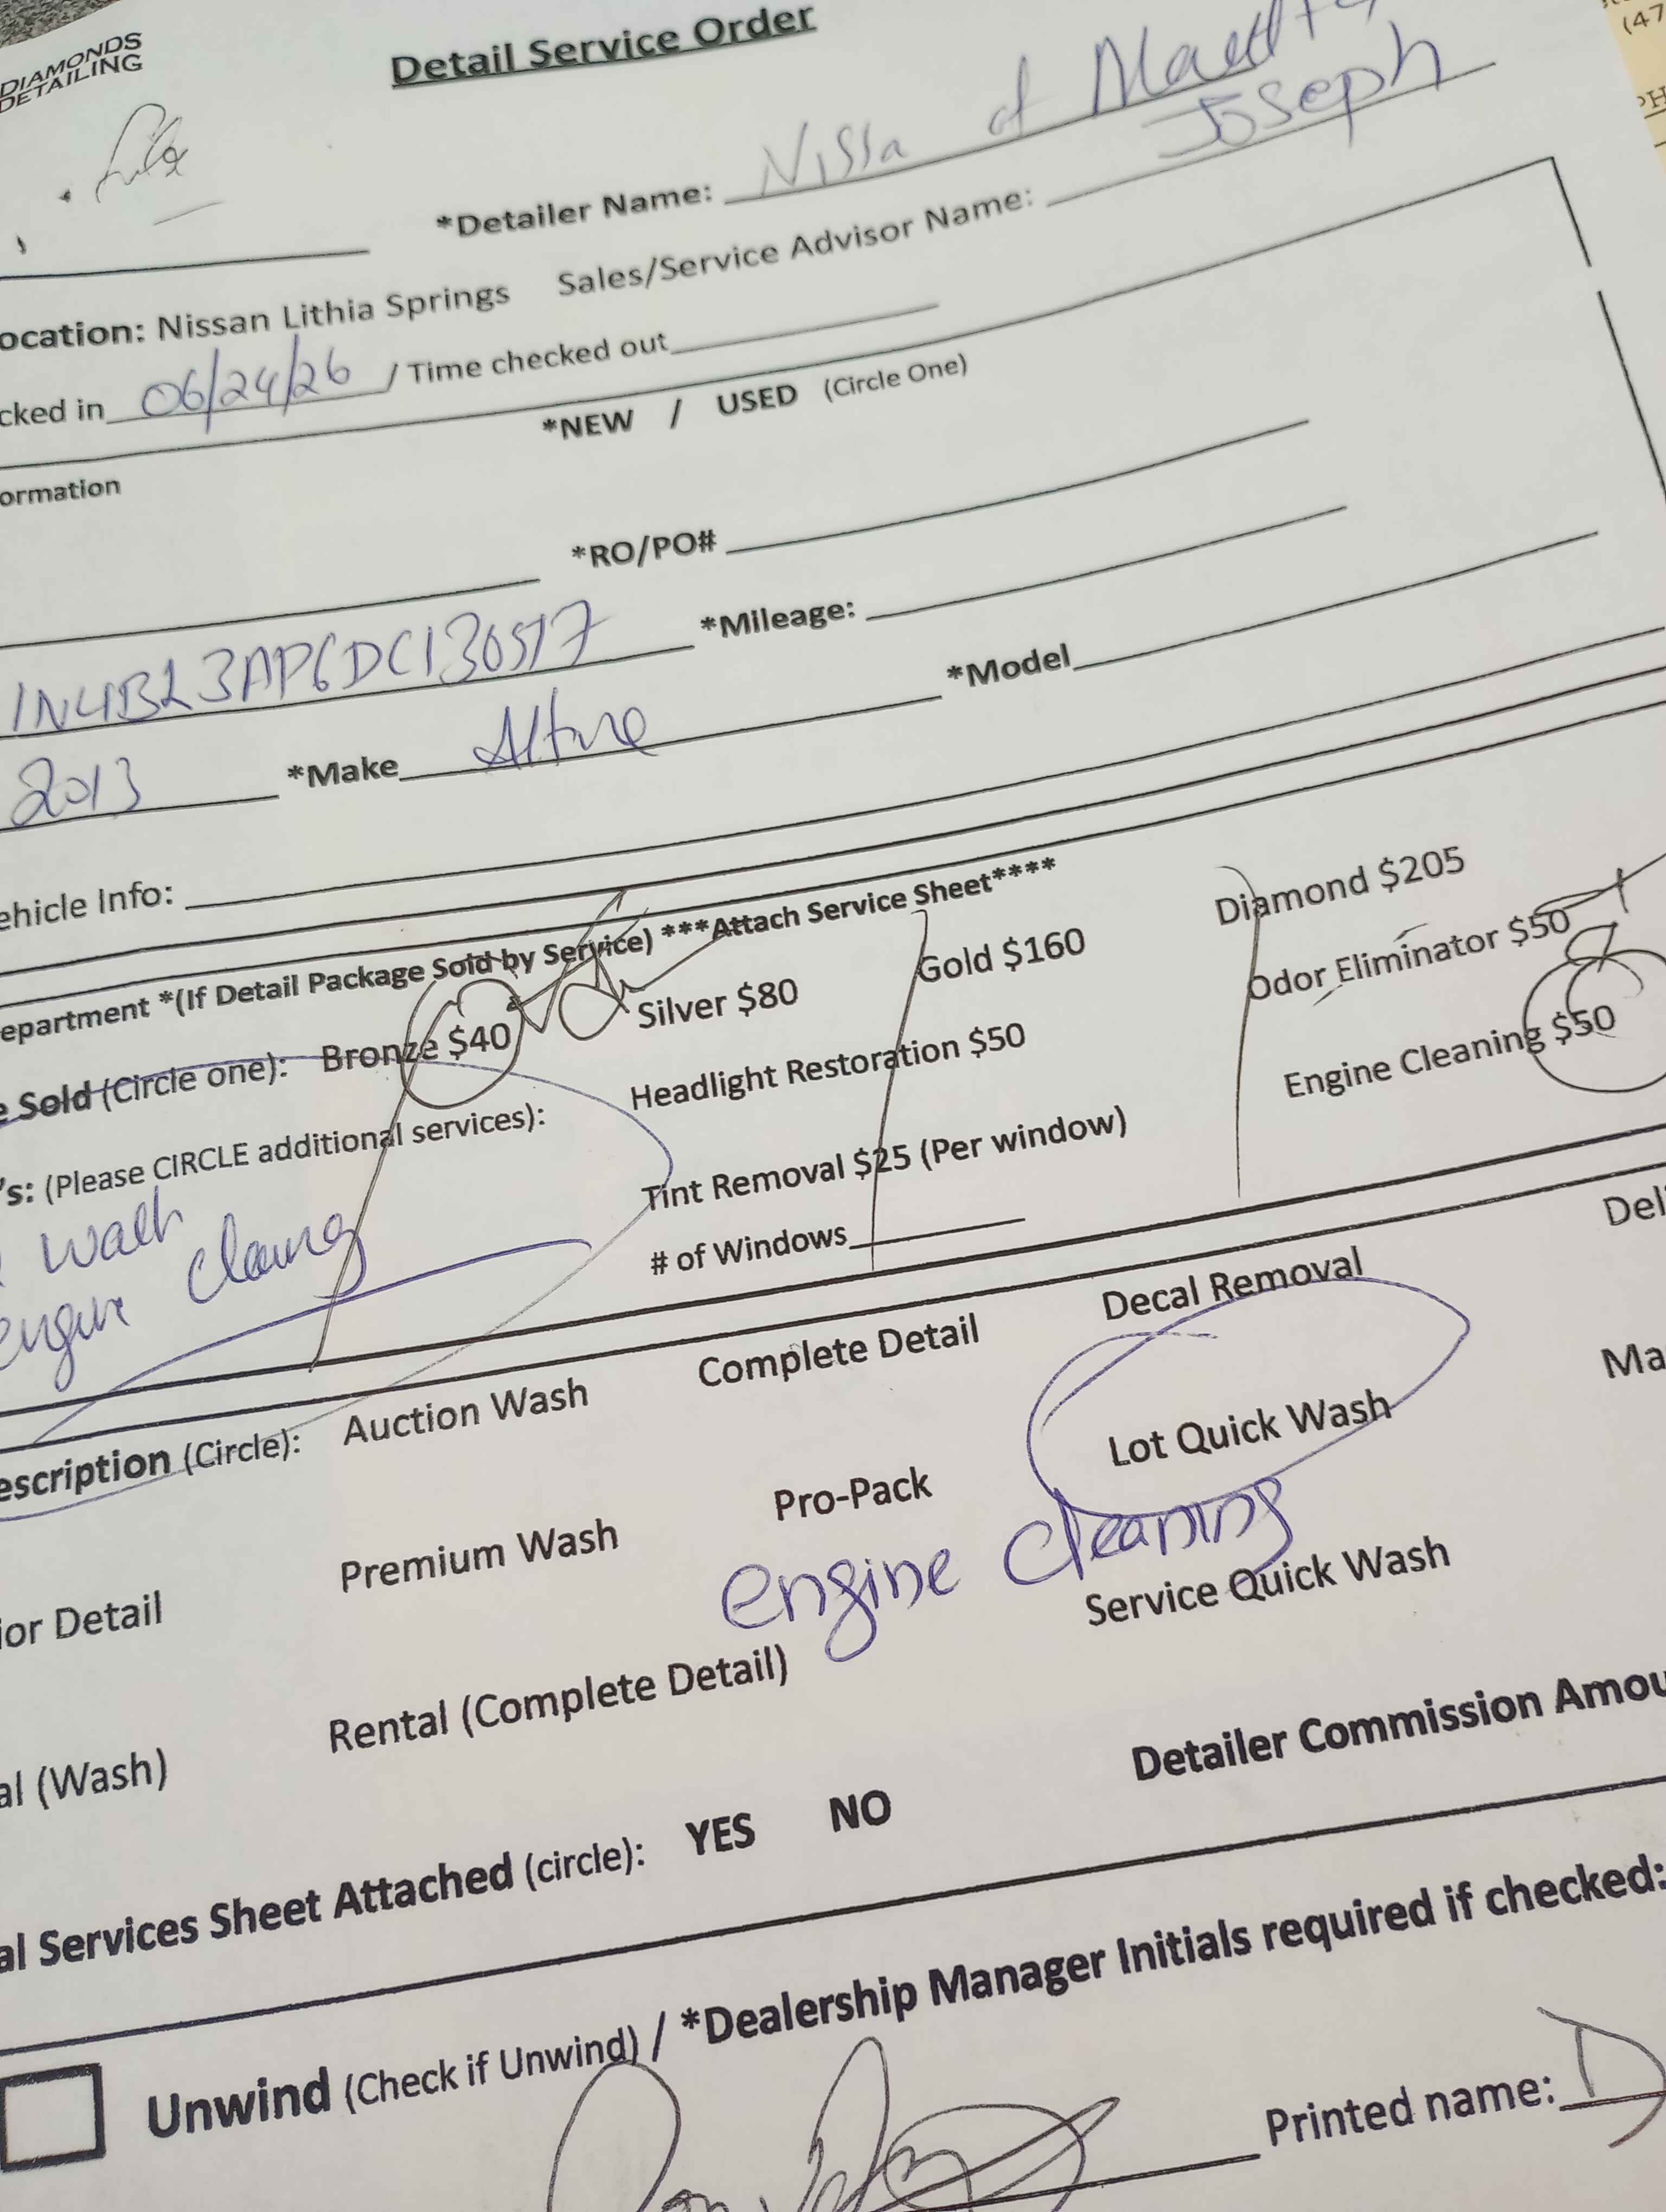 DIAMONDS
DETAILING
Detail Service Order
*Detailer Name: Nissa of
Joseph
ocation: Nissan Lithia Springs Sales/Service Advisor Name:
cked in 06/24/26 / Time checked out
*NEW / USED (Circle One)
ormation
*RO/PO#
*Mileage:
2013 *Make *Model
ehicle Info:
epartment *(If Detail Package Sold by Service) ***Attach Service Sheet****
e Sold (Circle one): Bronze $40 Silver $80 Gold $160 Diamond $205
's: (Please CIRCLE additional services): Headlight Restoration $50 Odor Eliminator $50
Tint Removal $25 (Per window) Engine Cleaning $50
engine
# of Windows
escription (Circle): Auction Wash Complete Detail Decal Removal Deli
ior Detail Premium Wash Pro-Pack Lot Quick Wash Ma
engine cleaning
al (Wash) Rental (Complete Detail) Service Quick Wash
al Services Sheet Attached (circle): YES NO Detailer Commission Amou
Unwind (Check if Unwind) / *Dealership Manager Initials required if checked:
Printed name: D